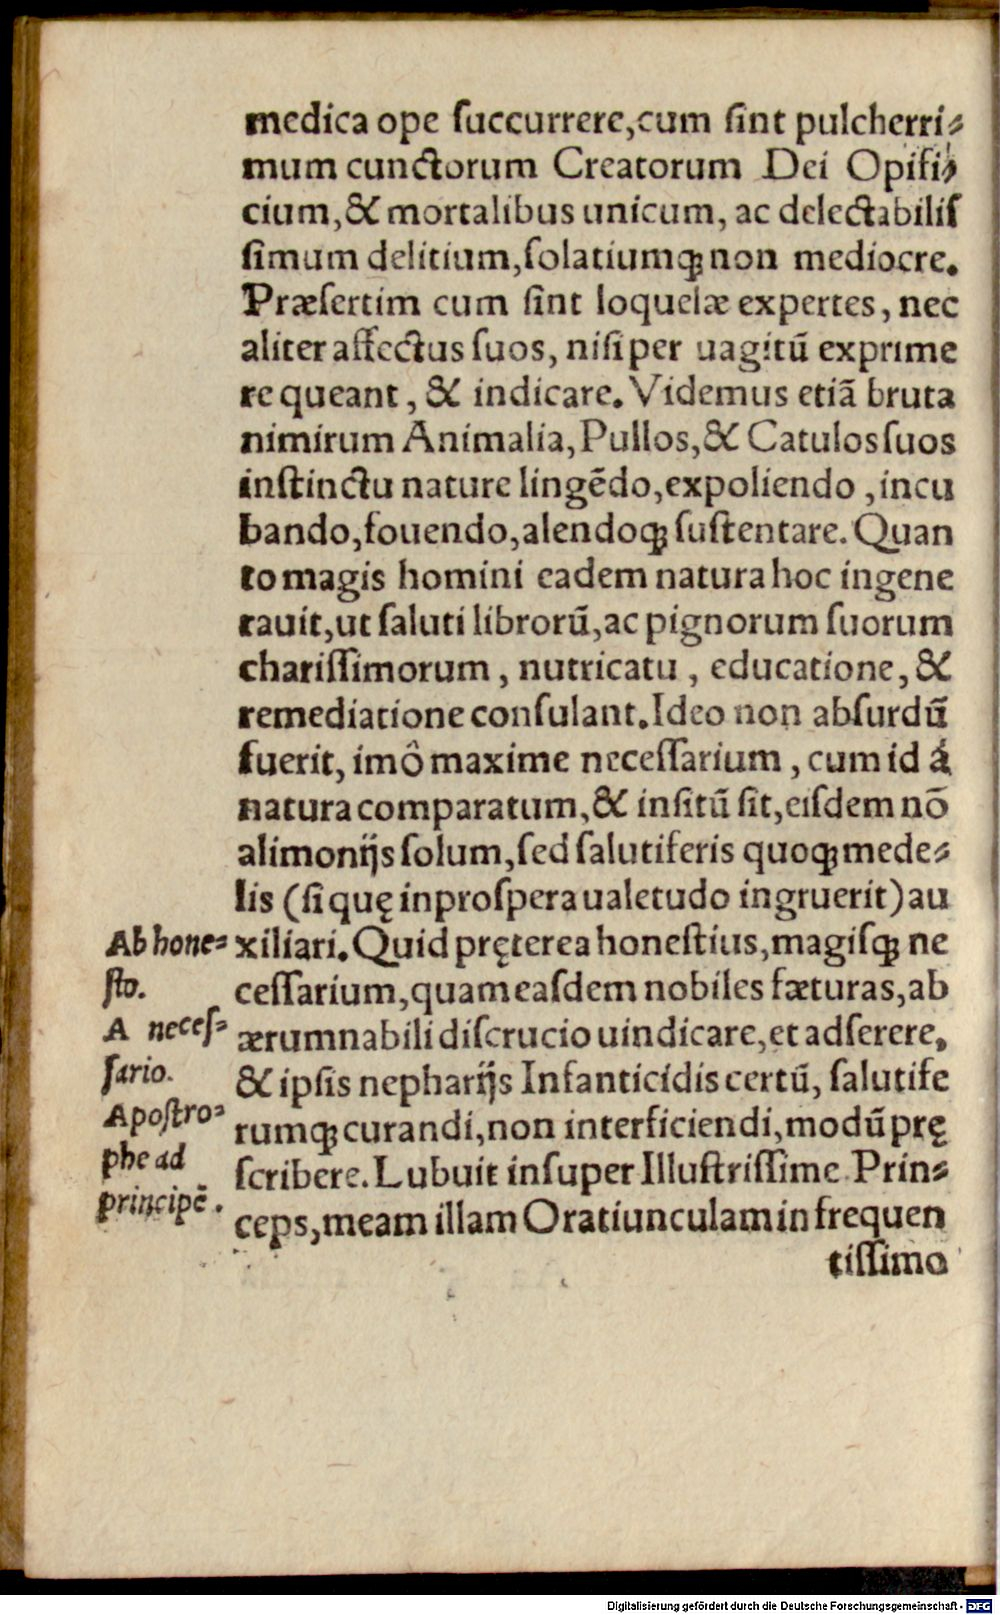 medica ope ſuccurrere,cum ſint pulcherri⸗
mum cunctorum Creatorum Dei Opifi⸗
cium,& mortalibus unicum, ac delectabiliſ
ſimum delitium,ſolatiumq́ꝫ non mediocre.
Præſertim cum ſint loquelæ expertes, nec
aliter affectus ſuos, niſi per uagitū exprime
re queant, & indicare. Videmus etiā bruta
nimirum Animalia, Pullos,& Catulos ſuos
inſtinctu nature lingēdo,expoliendo ,incu
bando,fouendo,alendoq́ꝫ ſuſtentare. Quan
to magis homini eadem natura hoc ingene
rauit,ut ſaluti librorū,ac pignorum ſuorum
chariſſimorum , nutricatu , educatione, &
remediatione conſulant. Ideo non abſurdū
fuerit, imô maxime neceſſarium , cum id á
natura comparatum,& inſitū ſit,eiſdem nō
alimonijs ſolum,ſed ſalutiferis quoq́ꝫ mede⸗
lis (ſi quę inproſpera ualetudo ingruerit) au
xiliari. Quid pręterea honeſtius,magiſq́ꝫ ne
ceſſarium,quam eaſdem nobiles fæturas,ab
ærumnabili diſcrucio uindicare,et adſerere,
& ipſis nepharijs Infanticidis certū, ſalutife
rumq́ꝫ curandi,non interficiendi,modū prę
ſcribere. Lubuit inſuper Illuſtriſſime Prin⸗
ceps,meam illam Oratiunculam in frequen
tiſſimo
Ab hone⸗
ſto.
A neceſ⸗
ſario.
Apoſtro⸗
phe ad
principē.
Digitalisierung gefördert durch die Deutsche Forschungsgemeinschaft - DFG